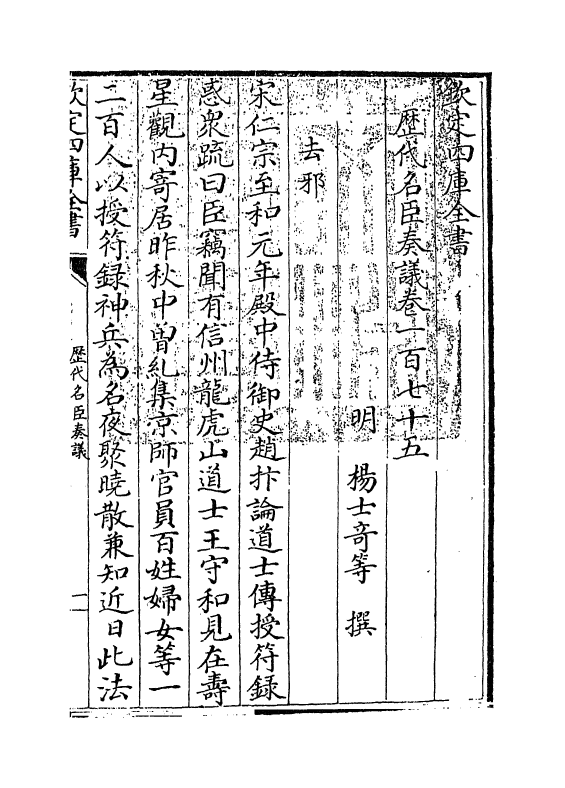 欽定四庫全書
歷代名臣奏議卷一百七十五
明 楊士奇等 撰
去邪
宋仁宗至和元年殿中侍御史趙抃論道士傳授符錄
惑衆疏曰臣竊聞有信州龍虎山道士王守和見在壽
星觀内寄居昨秋中曽糺集京師官員百姓婦女等一
二百人以授符錄神兵為名夜聚曉散兼知近日此法
欽定四庫全書
歷代名臣奏議